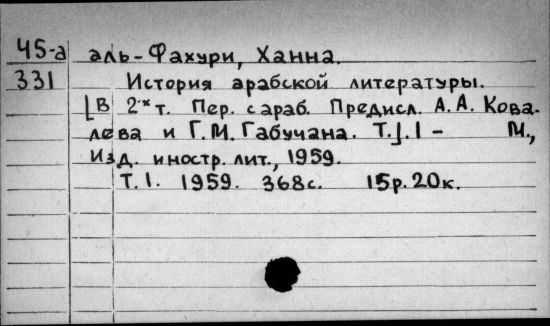 45-а аль-Фахури, Ханна.
331 История арабской литературы.
[В 2-х т. Пер. с араб. Предисл. А. А. Кова-
лева и Г. М. Габучана. Т.]. 1 - М.,
Изд. иностр. лит., 1959.
Т. 1. 1959. 368 с. 15 р. 20 к.